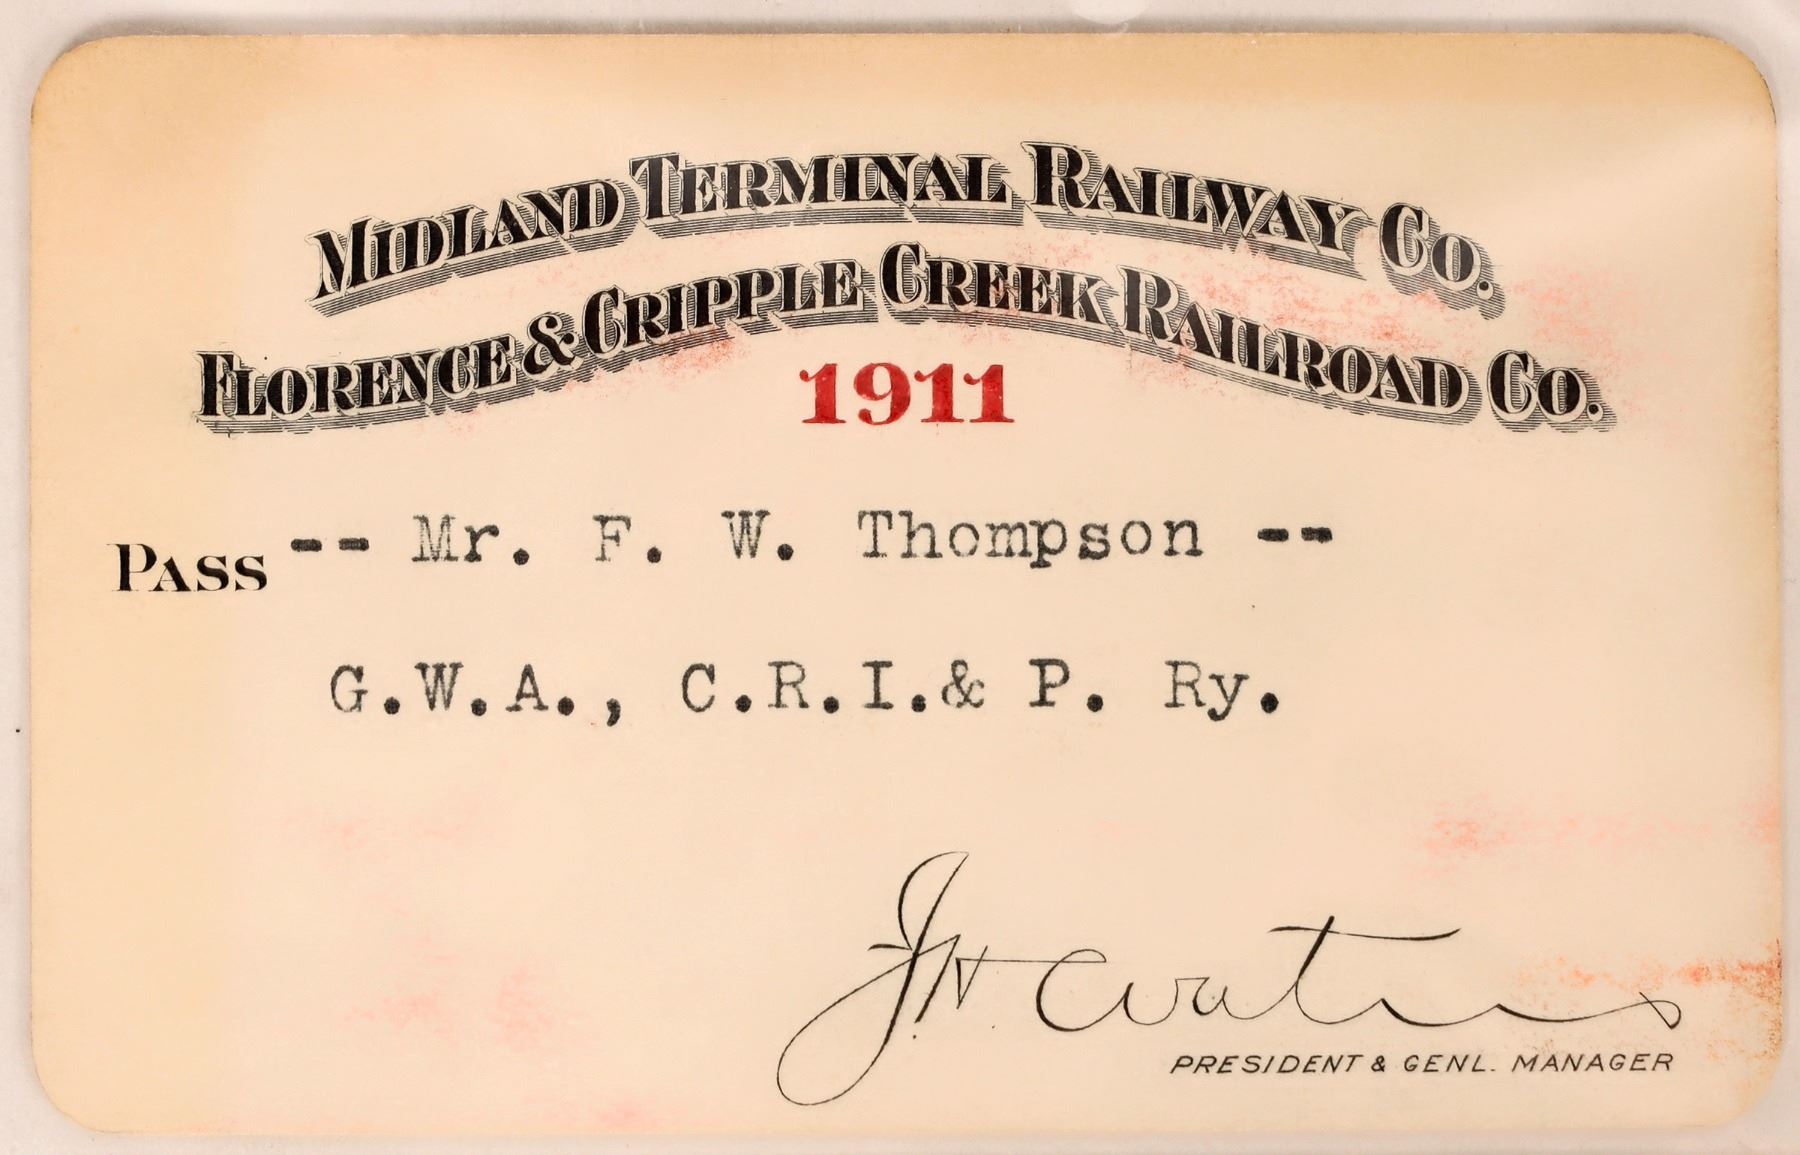 MIDLAND TERMINAL RAILWAY CO.
FLORENCE & CRIPPLE CREEK RAILROAD CO.
1911
PASS -- Mr. F. W. Thompson --
G.W.A., C.R.I.& P. Ry.
PRESIDENT & GENL. MANAGER